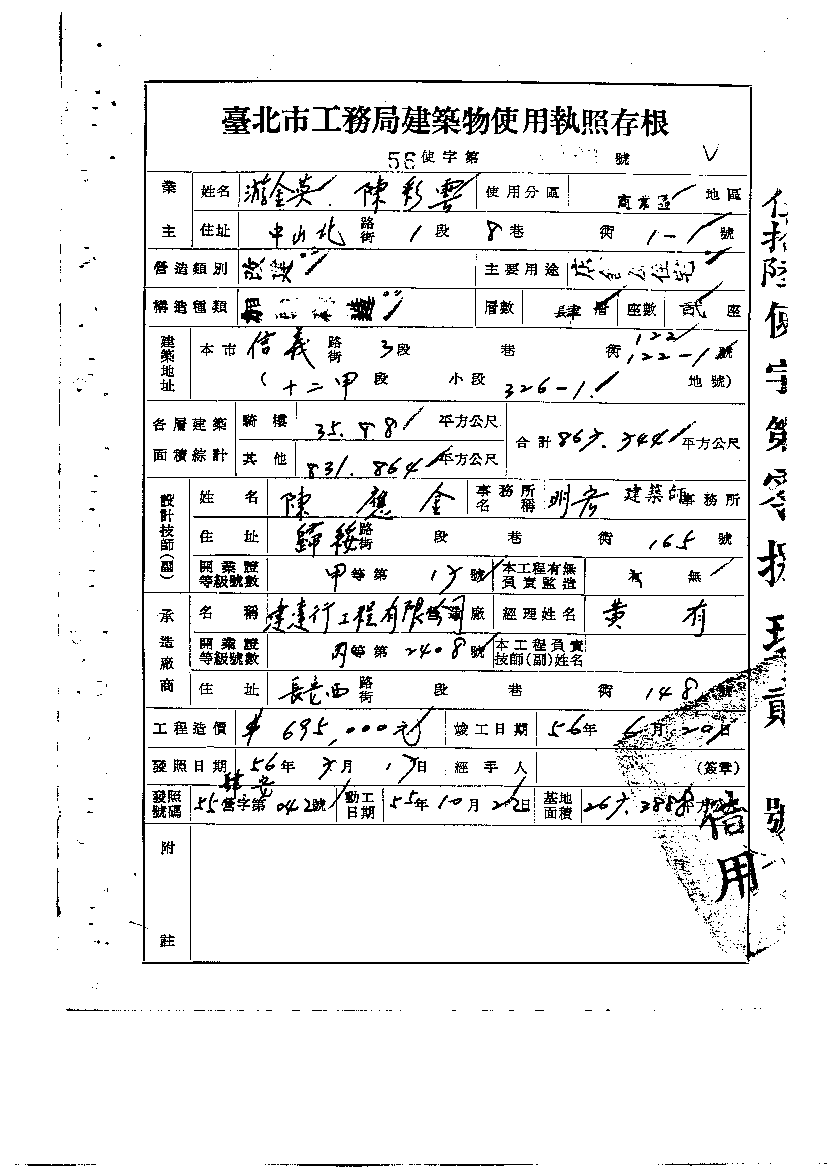 臺北市工務局建築物使用執照存根
56使字第 號
業主 姓名 游金英 陳彩雲 使用分區 商業區 地區
住址 中山北路街 1段 8巷 衖 1-1號
營造類別 改建 主要用途
構造種類 層數 肆層 座數 貳座
建築地址 本市 信義路街 3段 巷 衖 122 122-1號
(十二甲段 小段 326-1 地號)
各層建築面積綜計 騎樓 35.98 平方公尺 合計 平方公尺
其他 831.864 平方公尺
設計技師(副) 姓名 陳應金 事務所名稱 明彥建築師事務所
住址 歸綏路街 段 巷 衖 165號
開業證等級號數 甲等第 號 本工程有無負責監造 有 無
承造廠商 名稱 建行工程有限公司營造廠 經理姓名 黃有
開業證等級號數 丙等第2408號 本工程負責技師(副)姓名
住址 長安西路街 段 巷 衖 148號
工程造價 $695,000元 竣工日期 56年6月20日
發照日期 56年 月 日 經手人 (簽章)
發照號碼 55營字第042號 動工日期 55年10月22日 基地面積
附註
使字第 號
用